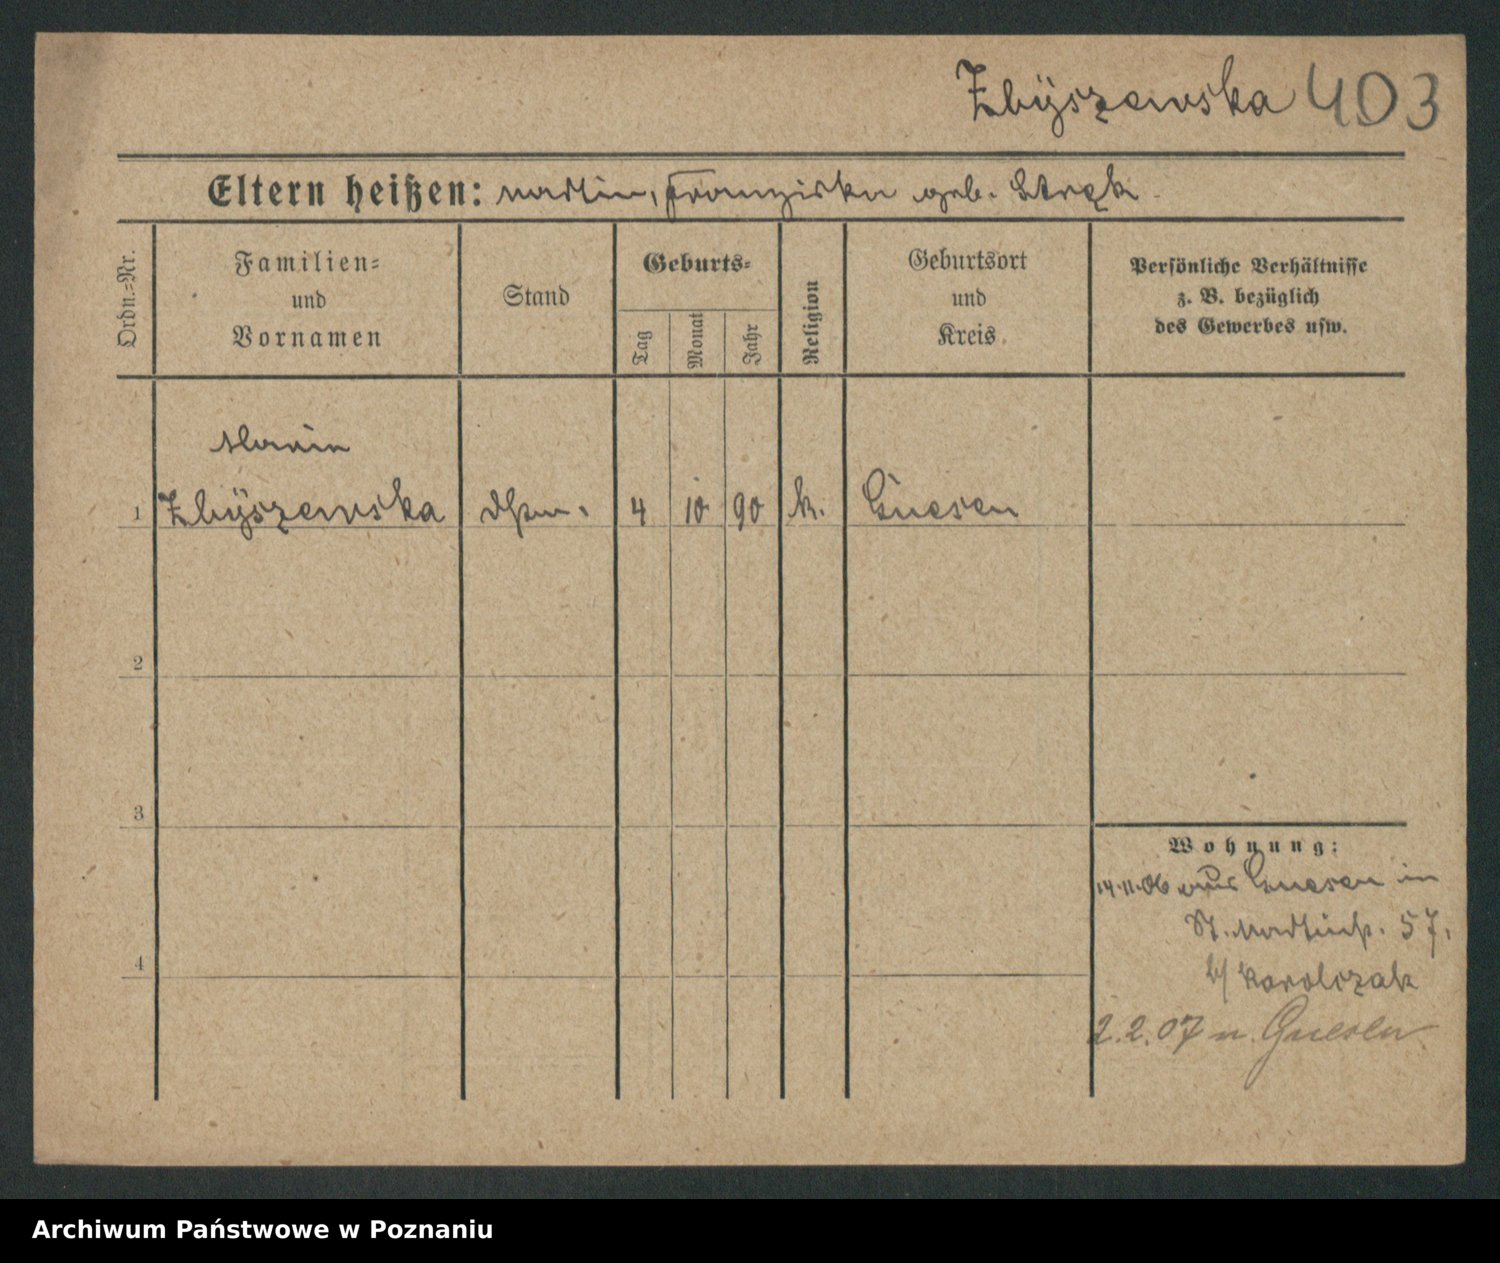 Zbÿszewska 403
Eltern heißen: Martin, Franziska geb.
Ordn.=Nr.
Familien=
und
Vornamen
Stand
Geburts=
Tag
Monat
Jahr
Religion
Geburtsort
und
Kreis.
Persönliche Verhältnisse
z. B. bezüglich
des Gewerbes usw.
Maria
1 Zbÿszewska 4 10 90 k. Gnesen
2
3
4
Wohnung:
14.11.06 aus Gnesen in
St. Martinstr. 57.
b/ Karolczak
2.2.07 n. Gnesen
Archiwum Państwowe w Poznaniu